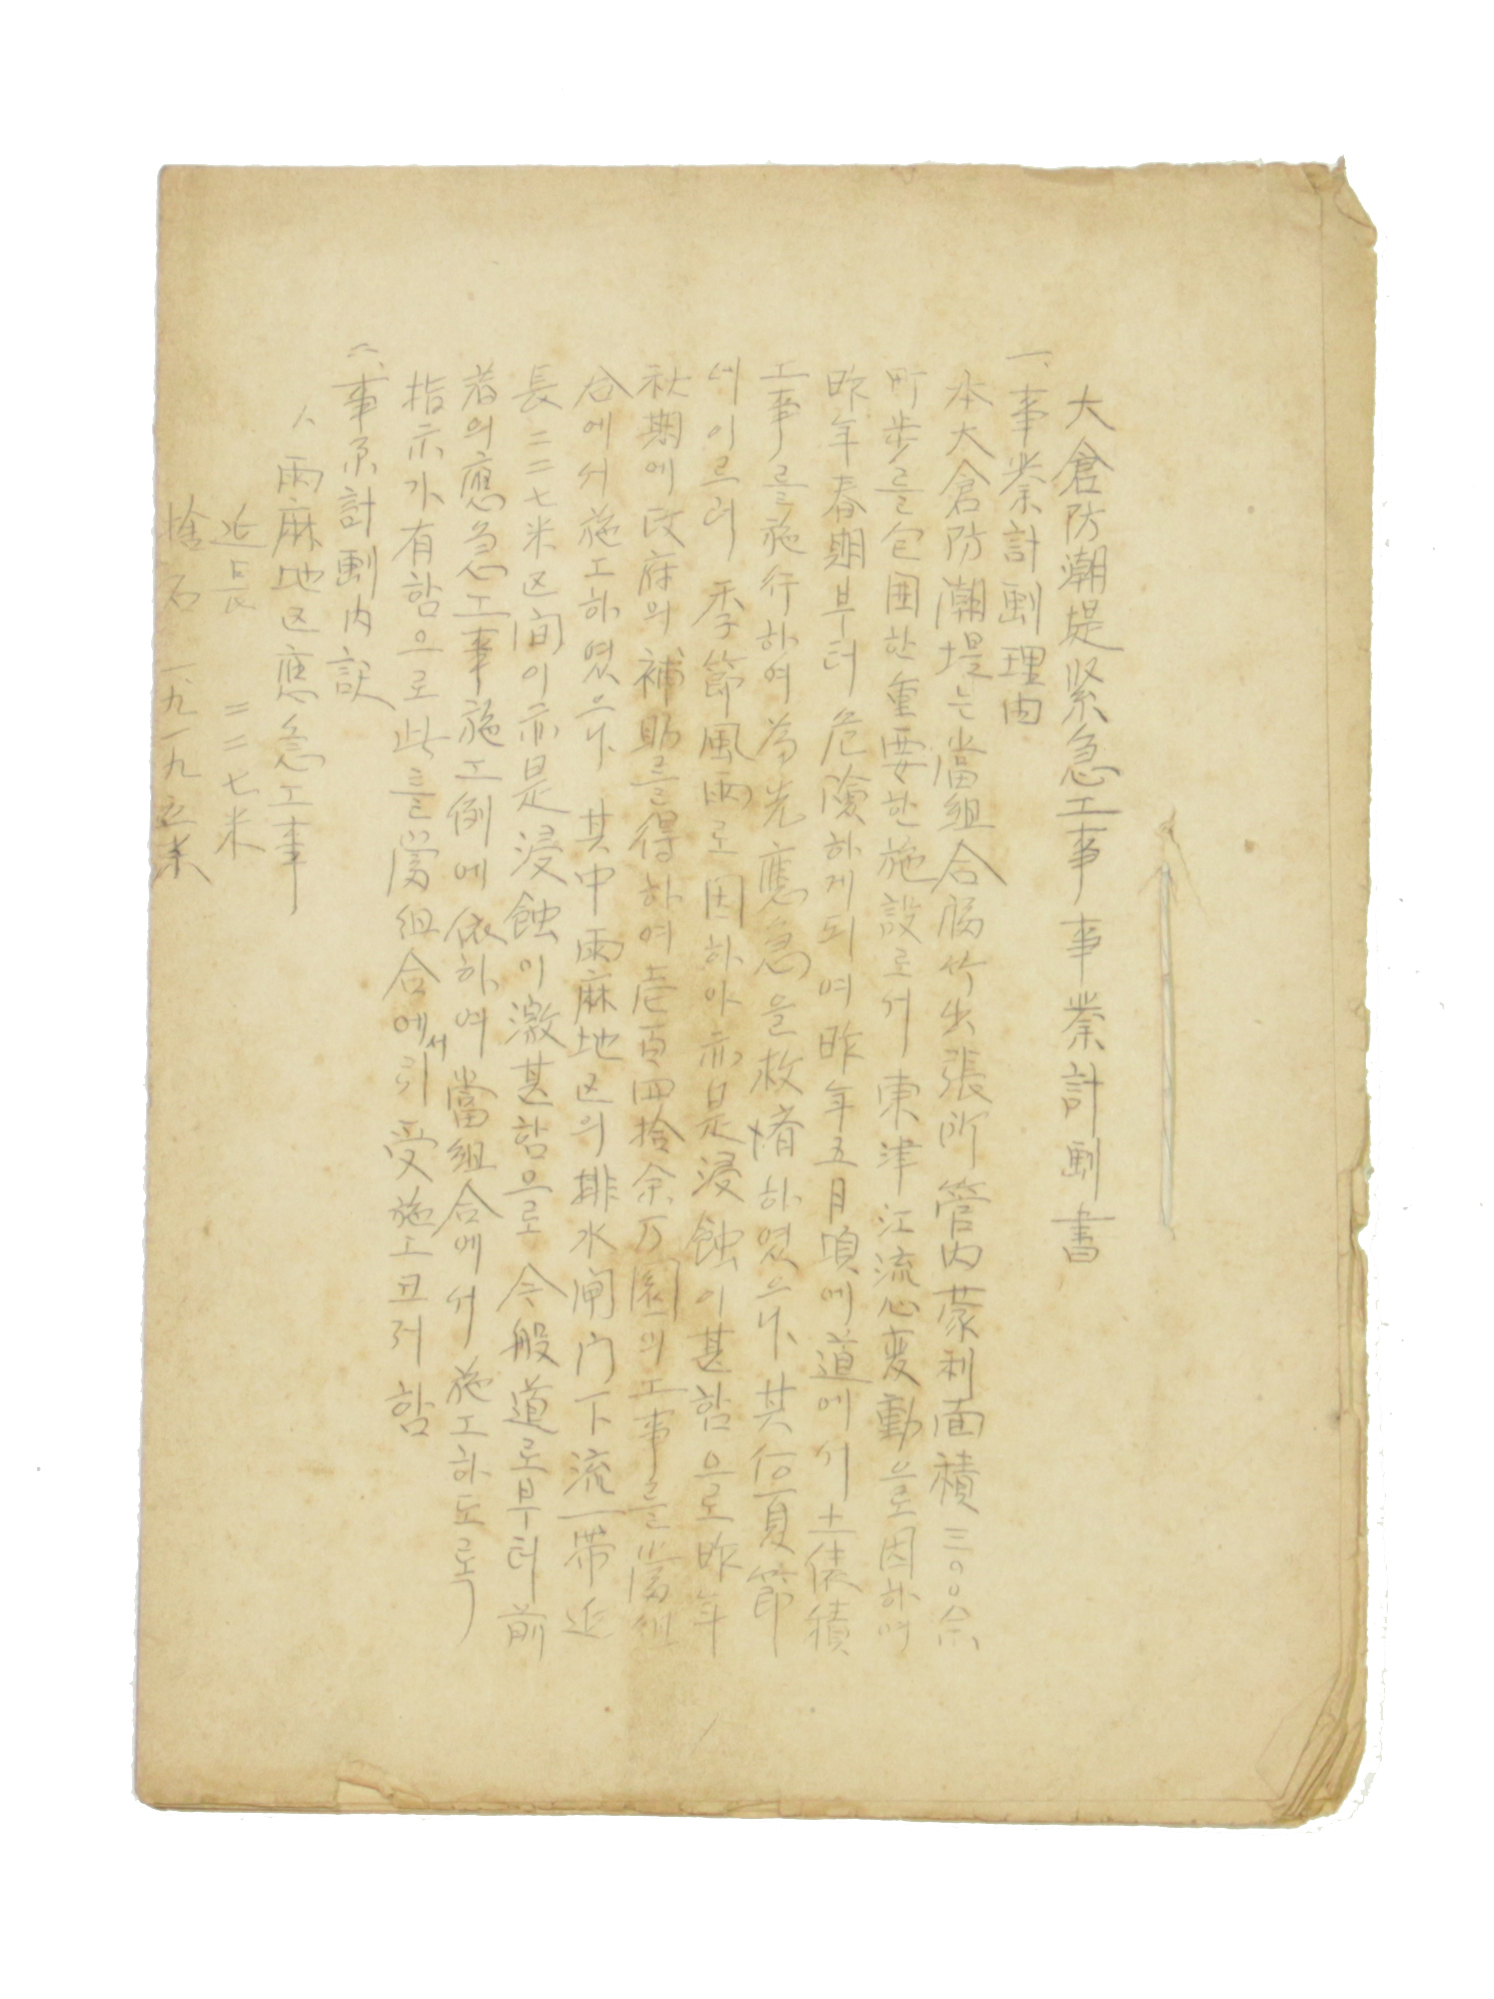 大倉防潮堤緊急工事事業計劃書
一、事業計劃理由
本大倉防潮堤는當組合扶竹出張所管內蒙利面積三〇〇余
町步를包囲한重要한施設로서 東津江流心変動으로因하여
昨年春期부터危險하게되여昨年五月頃에道에서土俵積
工事를施行하여為先應急을救済하였으나 其后夏節
에이르러 季節風雨로因하야亦是浸蝕이甚함으로昨年
秋期에政府의補助를得하여壱百四拾余万圜의工事를當組
合에서施工하였으나 其中雨麻地区의排水閘门下流一帶 延
長二二七米区间이亦是浸蝕이激甚함으로 今般道로부터前
者의應急工事施工例에依하여當組合에서施工하도록
指示가有함으로此를當組合에서引受施工코저함
二、事業計劃内訳
1、雨麻地区應急工事
延長 二二七米
捨石 一九一九五米